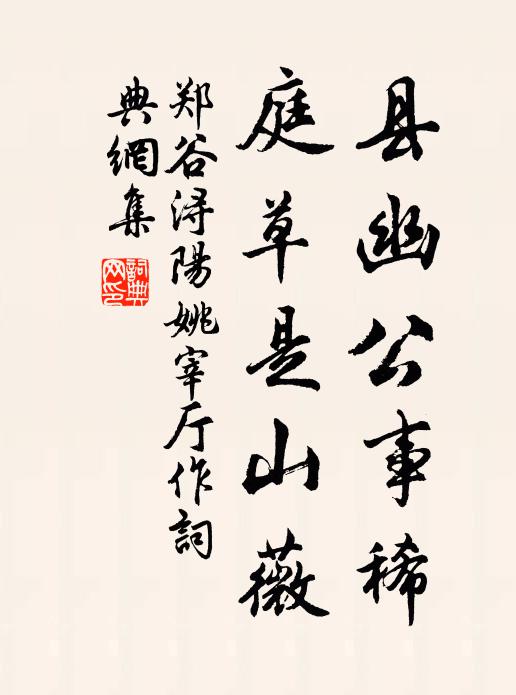 县幽公事稀
庭草是山薇
郑谷浔陽姚宰厅作詞
典網集
詞典
网印